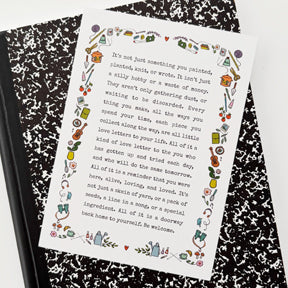 It's not just something you painted,
planted, knit, or wrote. It isn't just
a silly hobby or a waste of money.
They aren't only gathering dust, or
waiting to be discarded. Every
thing you make, all the ways you
spend your time, each piece you
collect along the way, are all little
love letters to your life. All of it a
kind of love letter to the you who
has gotten up and tried each day,
and who will do the same tomorrow.
All of it is a reminder that you were
here, alive, loving, and loved. It's
not just a skein of yarn, or a pack of
seeds, a line in a song, or a special
ingredient. All of it is a doorway
back home to yourself. Be welcome.